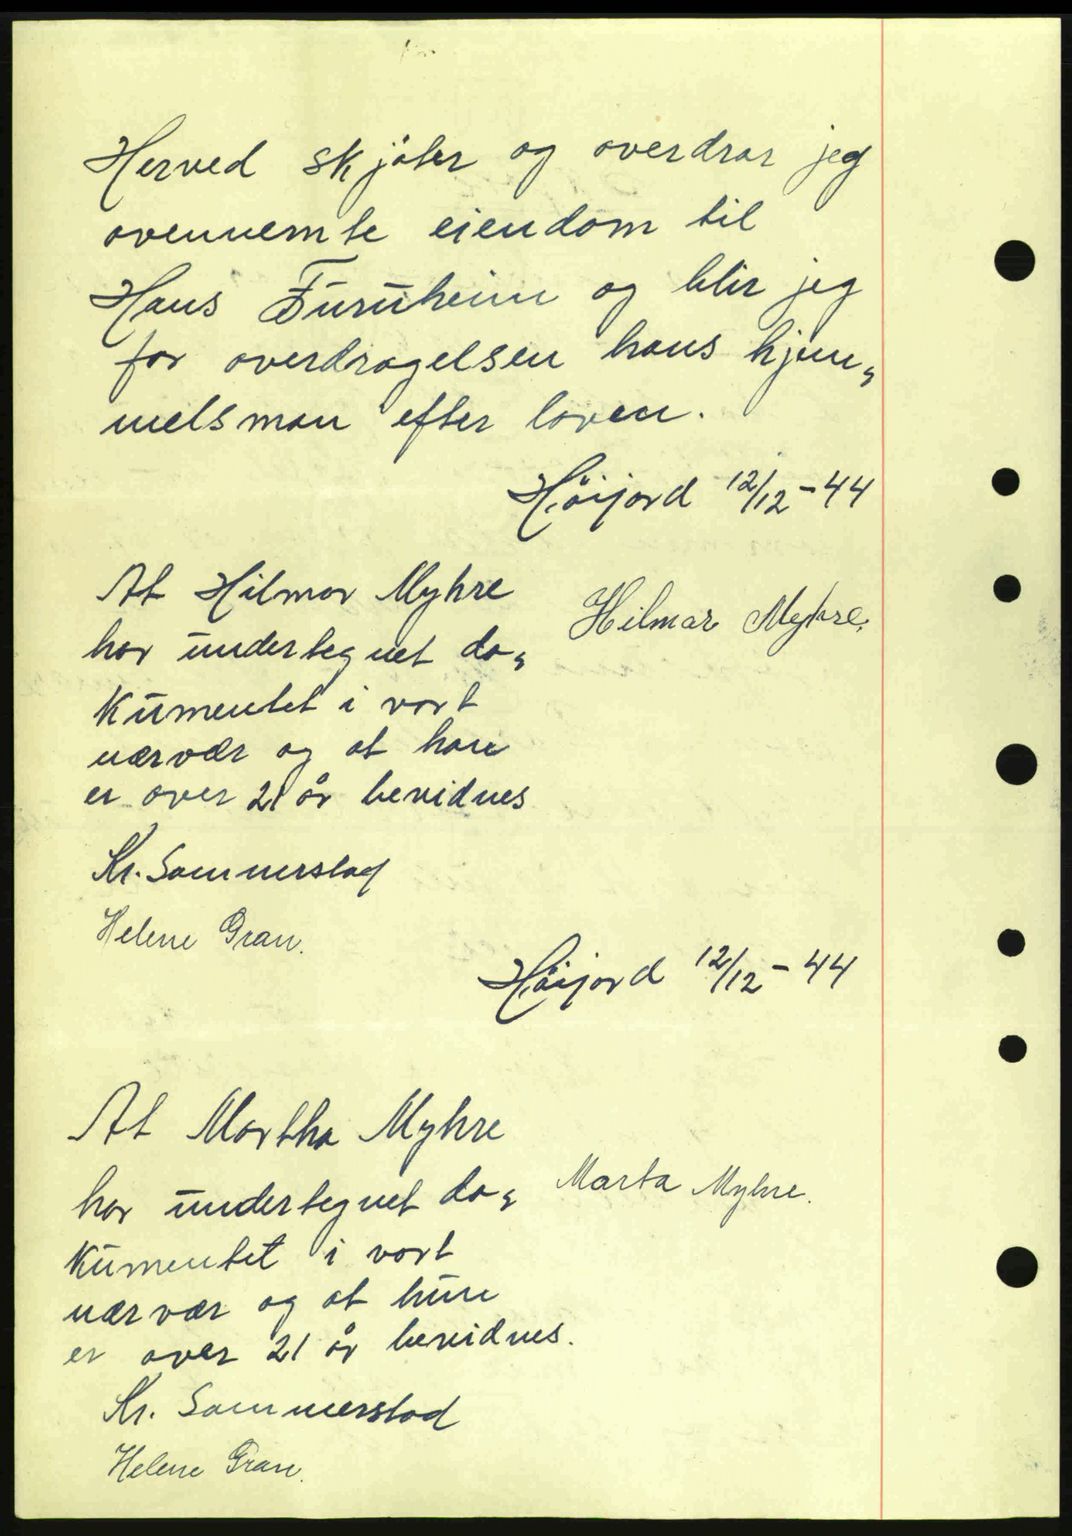 Herved skjöter og overdrar jeg
ovennemte eiendom til
Hans Furuheim og blir jeg
for overdragelsen hans hjem,
melsman efter loven.
Höijord 12/12-44
At Hilmar Myhre
har undertegnet do,
Hilmar Myhre.
kumentet i vort
nærvær og at han
er over 21 år bevidnes
Kr. Sommerstad
Helene Gran.
Höijord 12/12-44
At Martha Myhre
har undertegnet do,
Marta Myhre.
kumentet i vort
nærvær og at hun
er over 21 år bevidnes.
Kr. Sommerstad
Helene Gran.